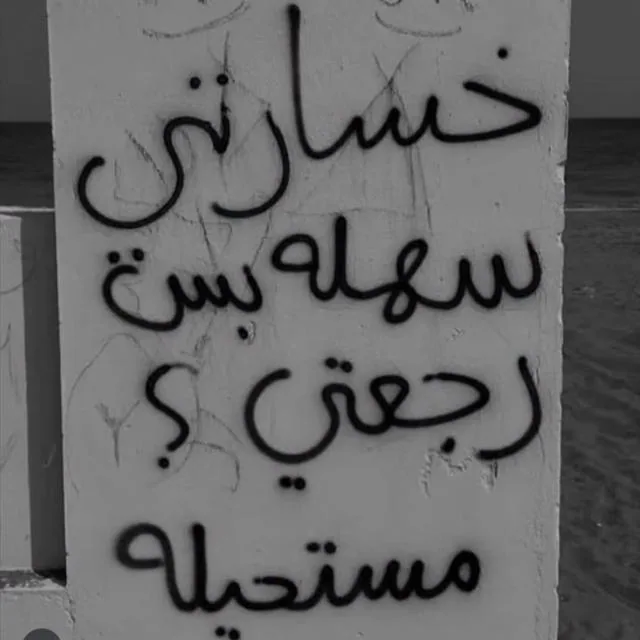 خسارتي
سهله بس
رجعتي ؟
مستحيله